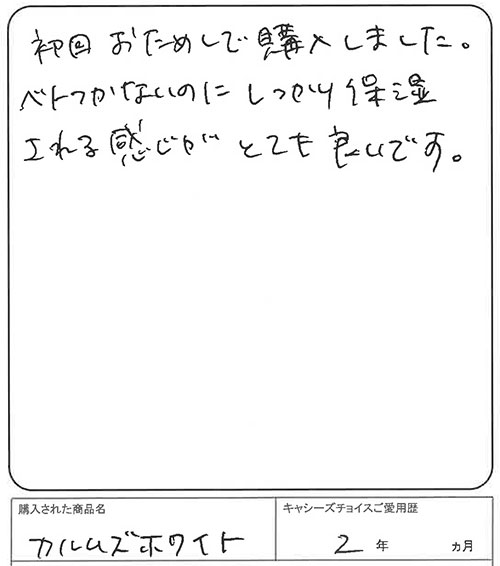 初回 おためしで購入しました。
ベトつかないのに しっかり保湿
される感じが とても良いです。
購入された商品名
キャシーズチョイスご愛用歴
カルムズホワイト
2 年 ヵ月